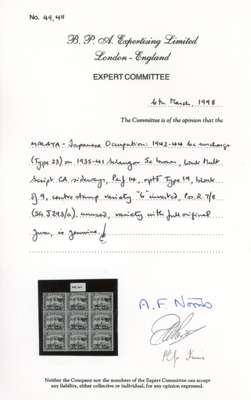 No. 49,411
B. P. A. Expertising Limited
London - England
EXPERT COMMITTEE
6th March, 1998
The Committee is of the opinion that the
MALAYA - Japanese Occupation: 1942-44 6c on orange
(Type 28) on 1935-41 Selangor 5c brown, Wmk Mult
Script CA sideways, Perf 14, optd Type 19, block
of 9, centre stamp variety "6" inverted, Pos. R. 7/8
(SG J293/a), unused, variety with full original
gum, is genuine.
Neither the Company nor the members of the Expert Committee can accept
any liability, either collective or individual, for any opinion expressed.